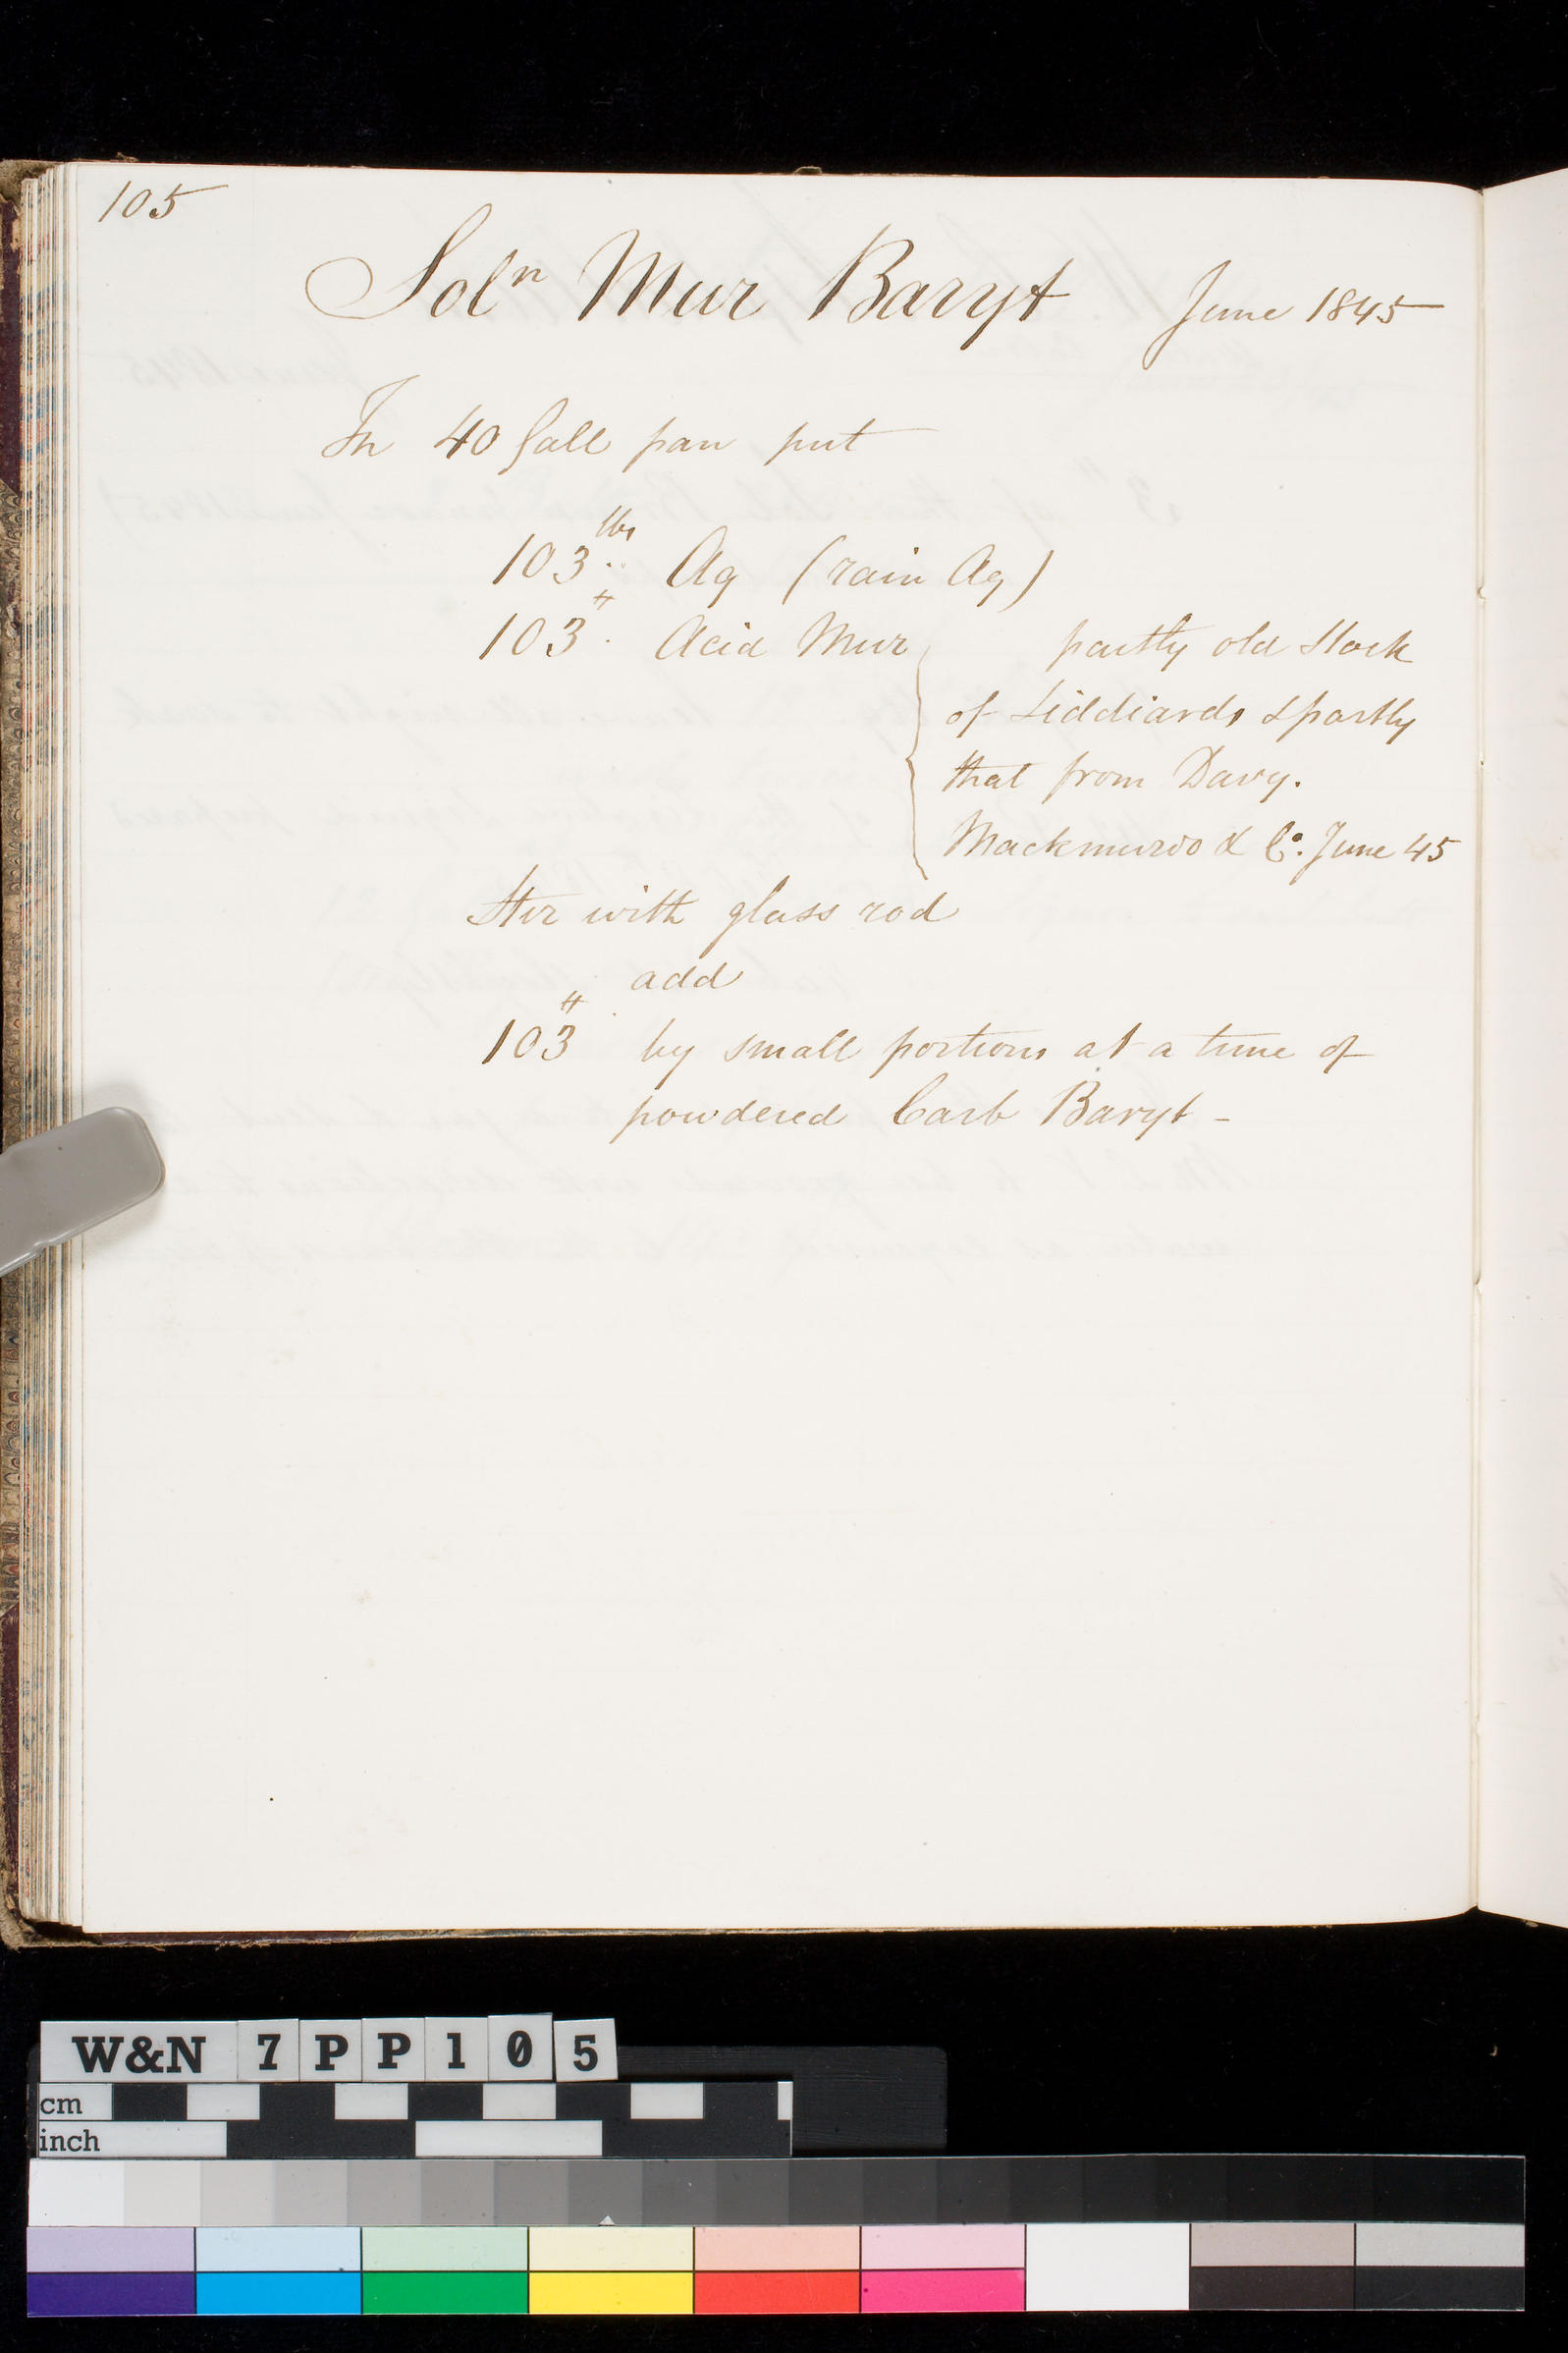 105
Solⁿ Mur Baryt June 1845
In 40 Gall pan put
103 lbs Aq (rain Aq)
103 " Acid Mur { partly old Stock
of Liddiards & partly
that from Davy.
Mackmurdo & Co. June 45
Stir with glass rod
add
103 " by small portions at a time of
powdered Carb Baryt -
W&N 7PP105
cm
inch